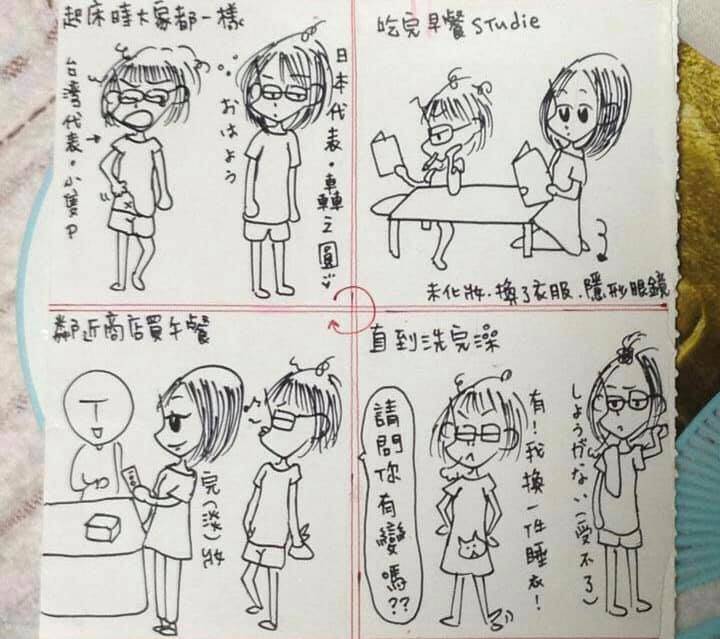 起床時大家都一樣
台湾代表。小隻P
おはよう
日本代表。
吃完早餐 studie
未化妝.換了衣服.隱形眼鏡
鄰近商店買午餐
完(淡)妝
直到洗完澡
請問你有變嗎??
有!我換一件睡衣!
しょうがない(受不了)